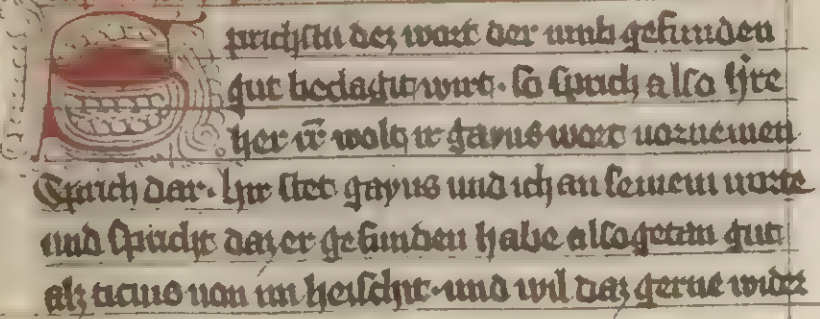 Sprichstu dez wort der umb gefunden
gut beclagit wirt. So sprich also h̾re
her ir̄ wolt ir gayus wort uornemen
Sprich dar. hir stet gayus und ich an seinem worte
und spricht daz er gefunden habe alsogetan gut
alz ticius uon im heischit. und wil daz gerne wider